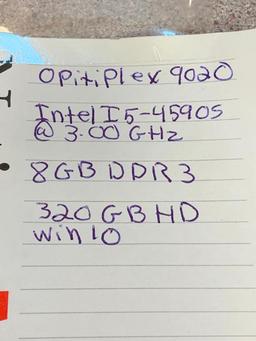 OPitiPlex 9020
Intel I5-4590S
@ 3.00 GHz
8GB DDR3
320 GB HD
Win 10